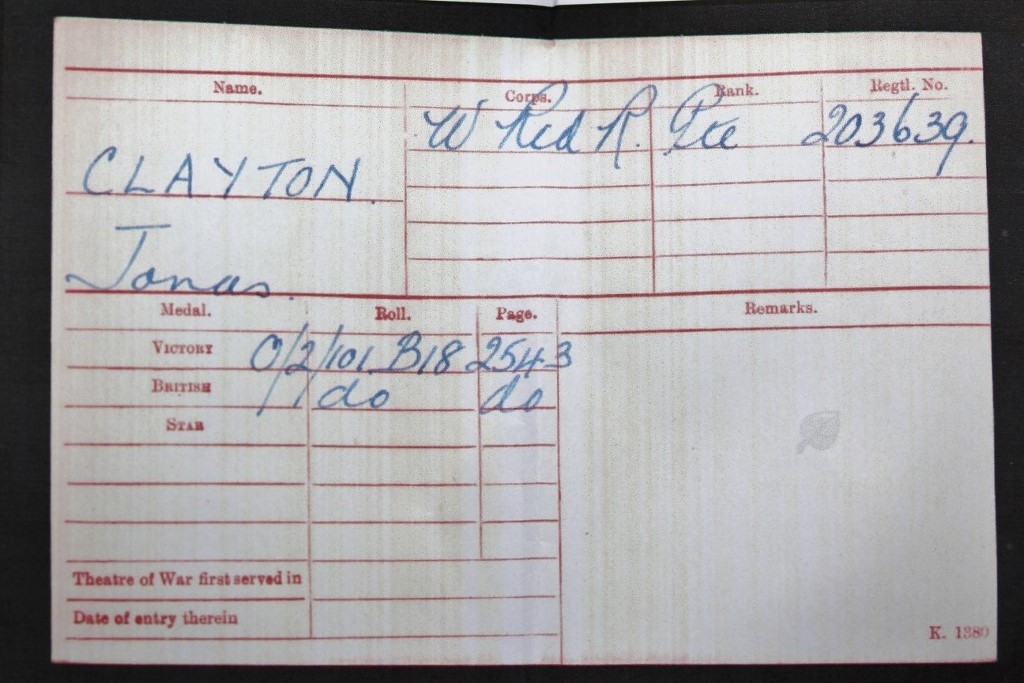 Name. Corps. Rank. Regtl. No.
W Rid R. Pte 203639.
CLAYTON.
Jonas.
Medal. Roll. Page. Remarks.
VICTORY O/2/101 B18 2543
BRITISH do do
STAR
Theatre of War first served in
Date of entry therein
K. 1380